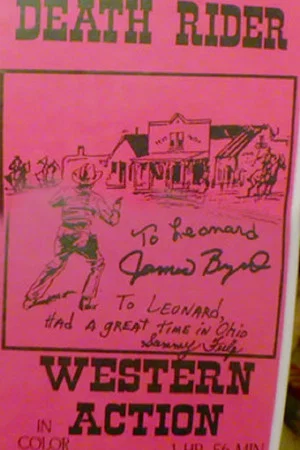 DEATH RIDER
To Leonard
James Byrd
TO LEONARD,
HAD A great time in Ohio
Sammy
WESTERN
ACTION
IN
COLOR 1 HR 56 MIN